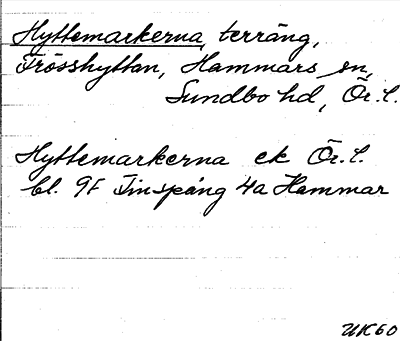 Hyttemarkerna, terräng,
Trösshyttan, Hammars sn,
Sundbo hd, Ör.l.
Hyttemarkerna ek Ör.l.
bl. 9F Finspång 4a Hammar
UK60